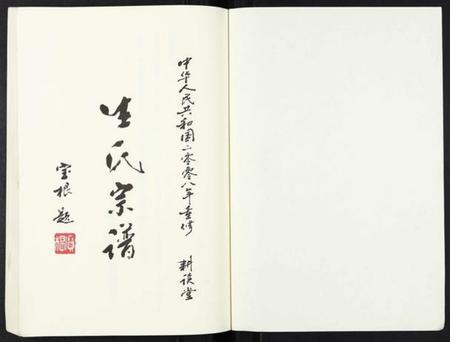 中华人民共和国二零零八年重修 耕读堂
生氏宗谱
宝根题